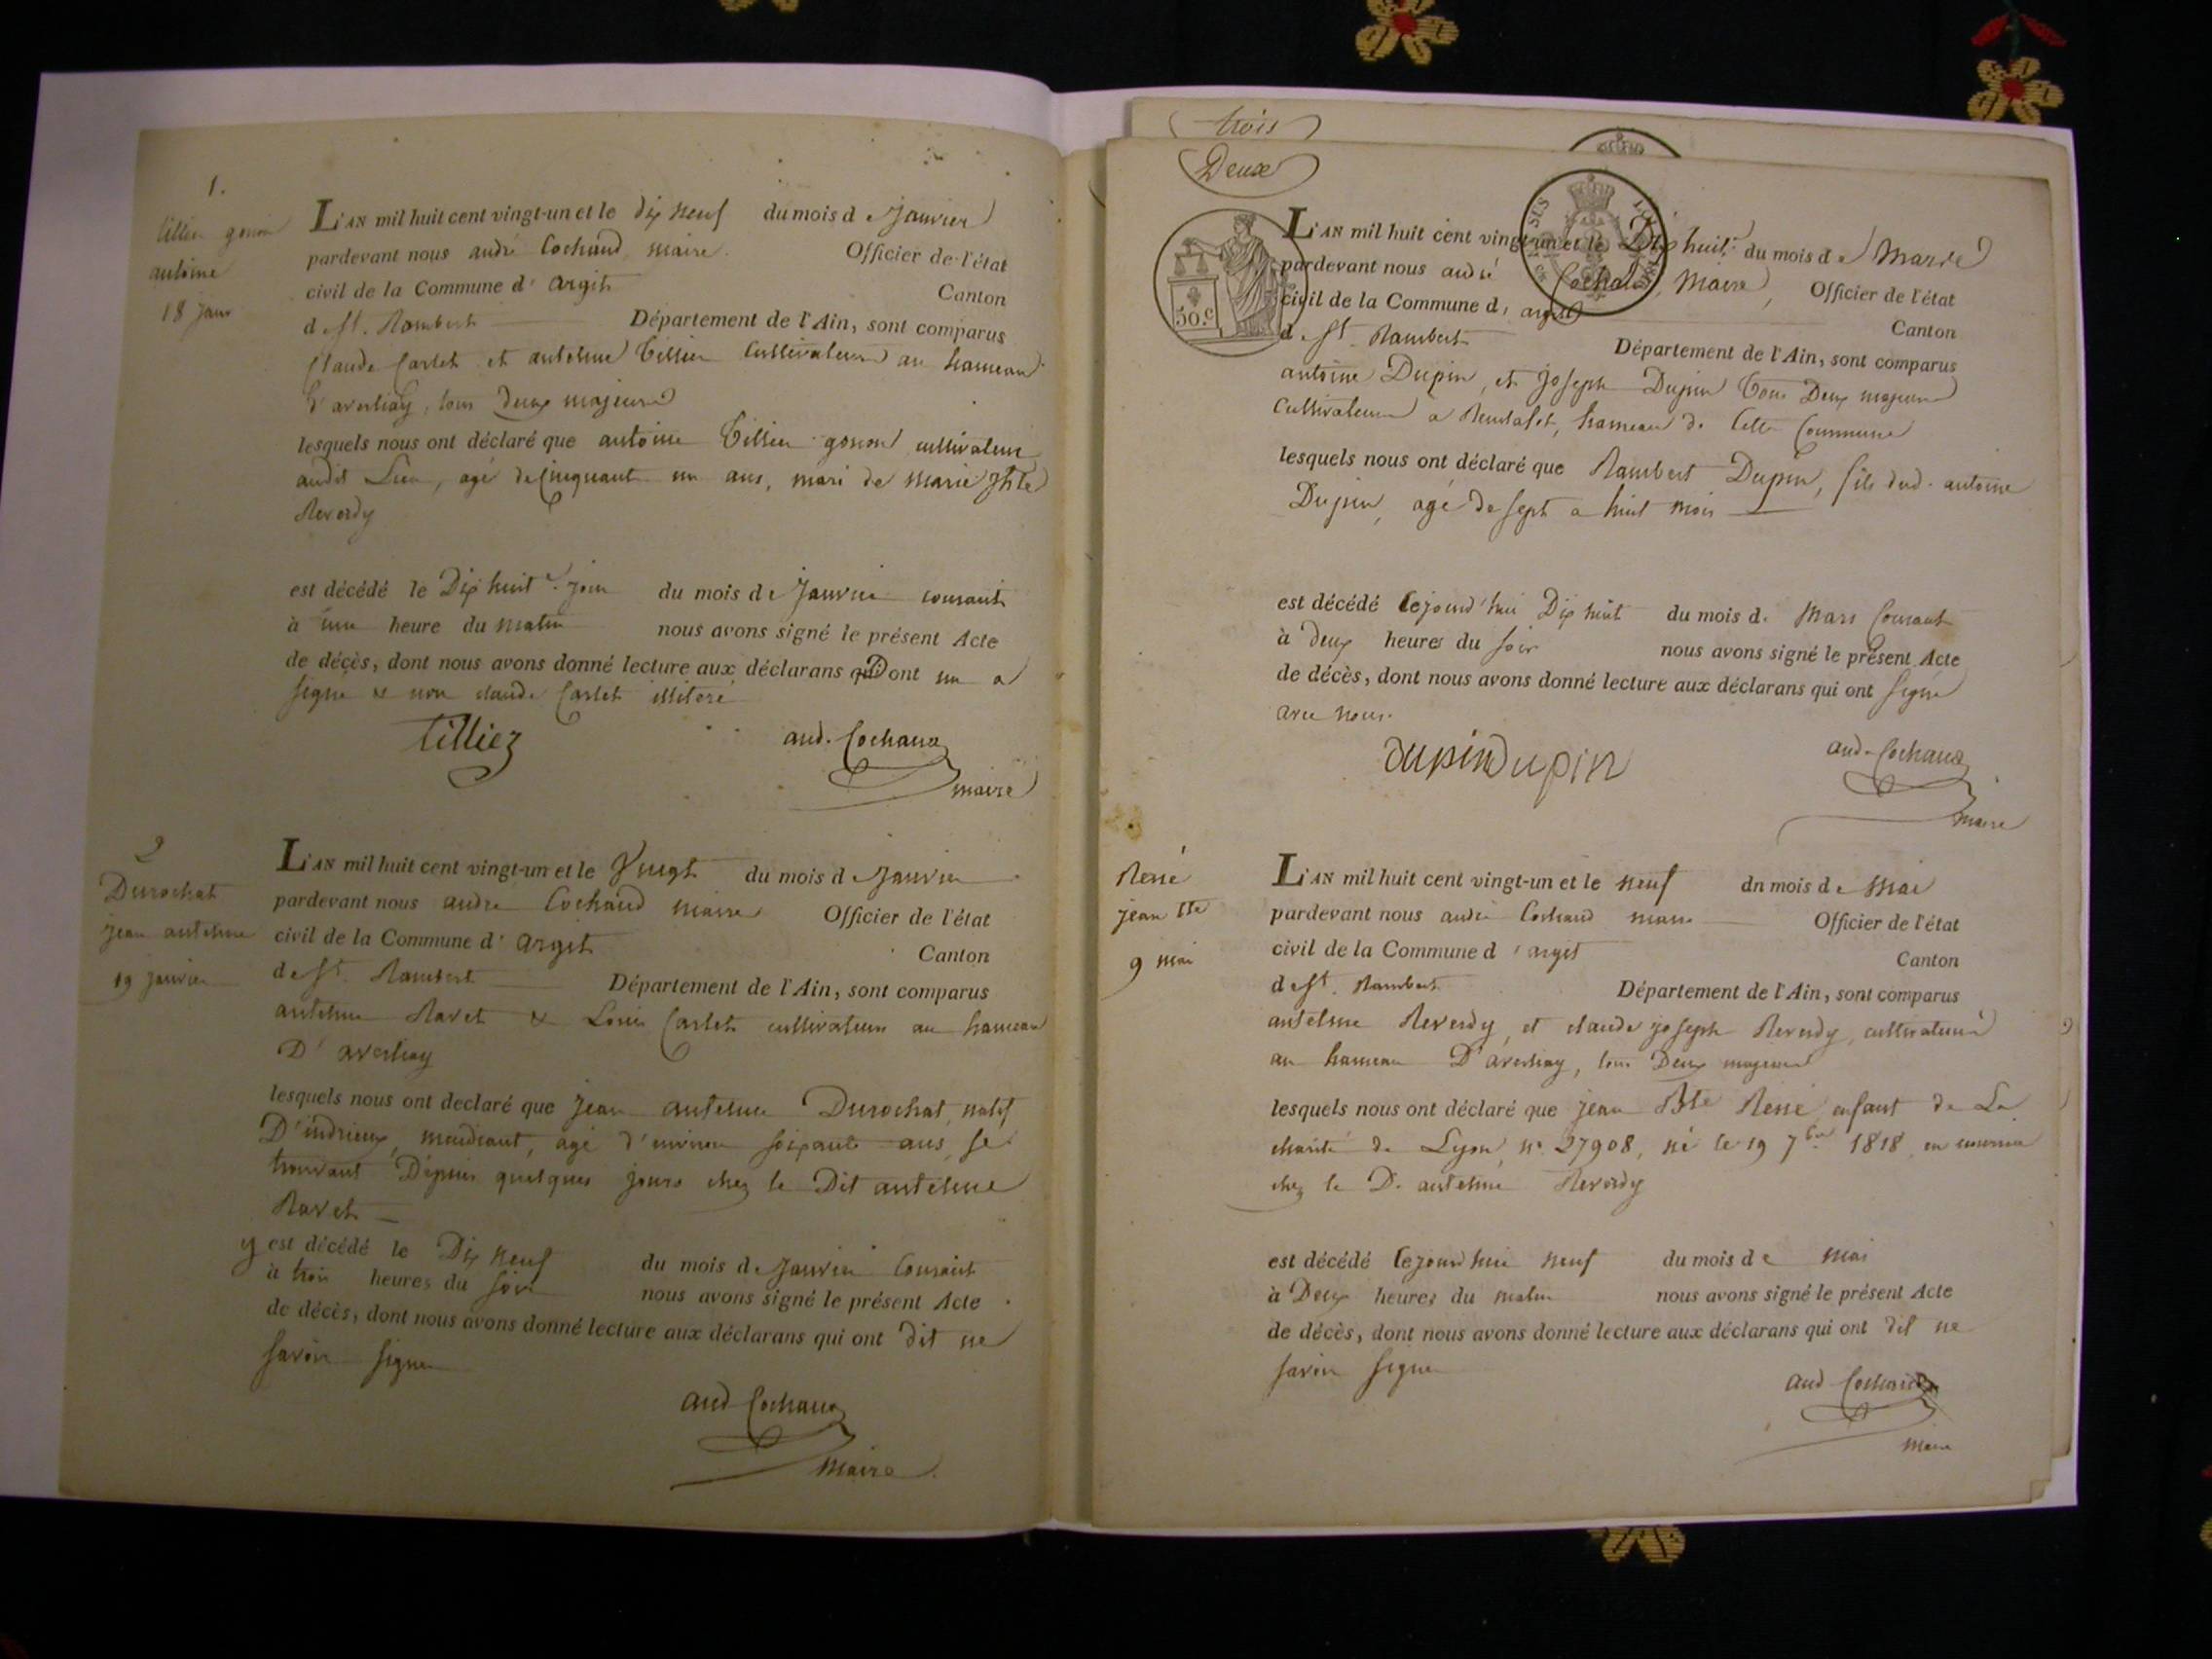 1.
tillier gonon
antoine
18 janv
L'AN mil huit cent vingt-un et le dix neuf du mois de Janvier
pardevant nous andré Cochaud maire. Officier de l'état
civil de la Commune d'argit Canton
de St. Rambert Département de l'Ain, sont comparus
Claude Carlet et antelme Tillier Cultivateurs au hameau
d'averliay, tous deux majeurs
lesquels nous ont déclaré que antoine Tillier gonon cultivateur
audit Lieu, agé de Cinquante un ans, mari de marie
Reverdy
est décédé le Dix huit e. jour du mois de Janvier courant
à une heure du matin nous avons signé le présent Acte
de décès, dont nous avons donné lecture aux déclarans qui Dont un a
signé & non claude Carlet illiteré
tillier
and. Cochaud
maire
2
Durochat
jean antelme
19 janvier
L'AN mil huit cent vingt-un et le Vingt du mois de Janvier
pardevant nous andré Cochaud maire Officier de l'état
civil de la Commune d'argit Canton
de St. Rambert Département de l'Ain, sont comparus
antelme Ravet & Louis Carlet cultivateurs au hameau
D'averliay
lesquels nous ont declaré que jean antelme Durochat, natif
D'indrieux, mendiant, agé d'environ soixante ans, se
trouvant Depuis quelques jours chez le Dit antelme
Ravet
y est décédé le Dix neuf du mois de Janvier Courant
à trois heures du soir nous avons signé le présent Acte
de décès, dont nous avons donné lecture aux déclarans qui ont dit ne
savoir signer
and Cochaud
Maire
trois
Deux
50.c
L'AN mil huit cent vingt-un et le Dix huit e. du mois de Mars
pardevant nous andré Cochaud, Maire, Officier de l'état
civil de la Commune d, argit Canton
de St. Rambert Département de l'Ain, sont comparus
antoine Dupin, et joseph Dupin Tous Deux majeurs
Cultivateurs a hameau de Cette Commune
lesquels nous ont déclaré que Rambert Dupin, fils dud. antoine
Dupin, agé de sept a huit mois
est décédé Cejourd'hui Dix huit du mois de Mars Courant
à deux heures du soir nous avons signé le présent Acte
de décès, dont nous avons donné lecture aux déclarans qui ont signé
avec nous.
dupin Dupin
and. Cochaud
maire
René
jean Bte
9 mai
L'AN mil huit cent vingt-un et le neuf dn mois de Mai
pardevant nous andré Cochaud maire Officier de l'état
civil de la Commune d'argit Canton
de St. Rambert Département de l'Ain, sont comparus
antelme Reverdy, et claude joseph Reverdy, cultivateurs
au hameau D'averliay, tous Deux majeurs
lesquels nous ont déclaré que jean Bte René, enfant de La
charité de Lyon, n° 27908, né le 19 7bre 1818, en nourrice
chez le D. antelme Reverdy
est décédé Cejourd'hui neuf du mois de mai
à Deux heures du matin nous avons signé le présent Acte
de décès, dont nous avons donné lecture aux déclarans qui ont dit ne
savoir signer
and Cochaud
Maire